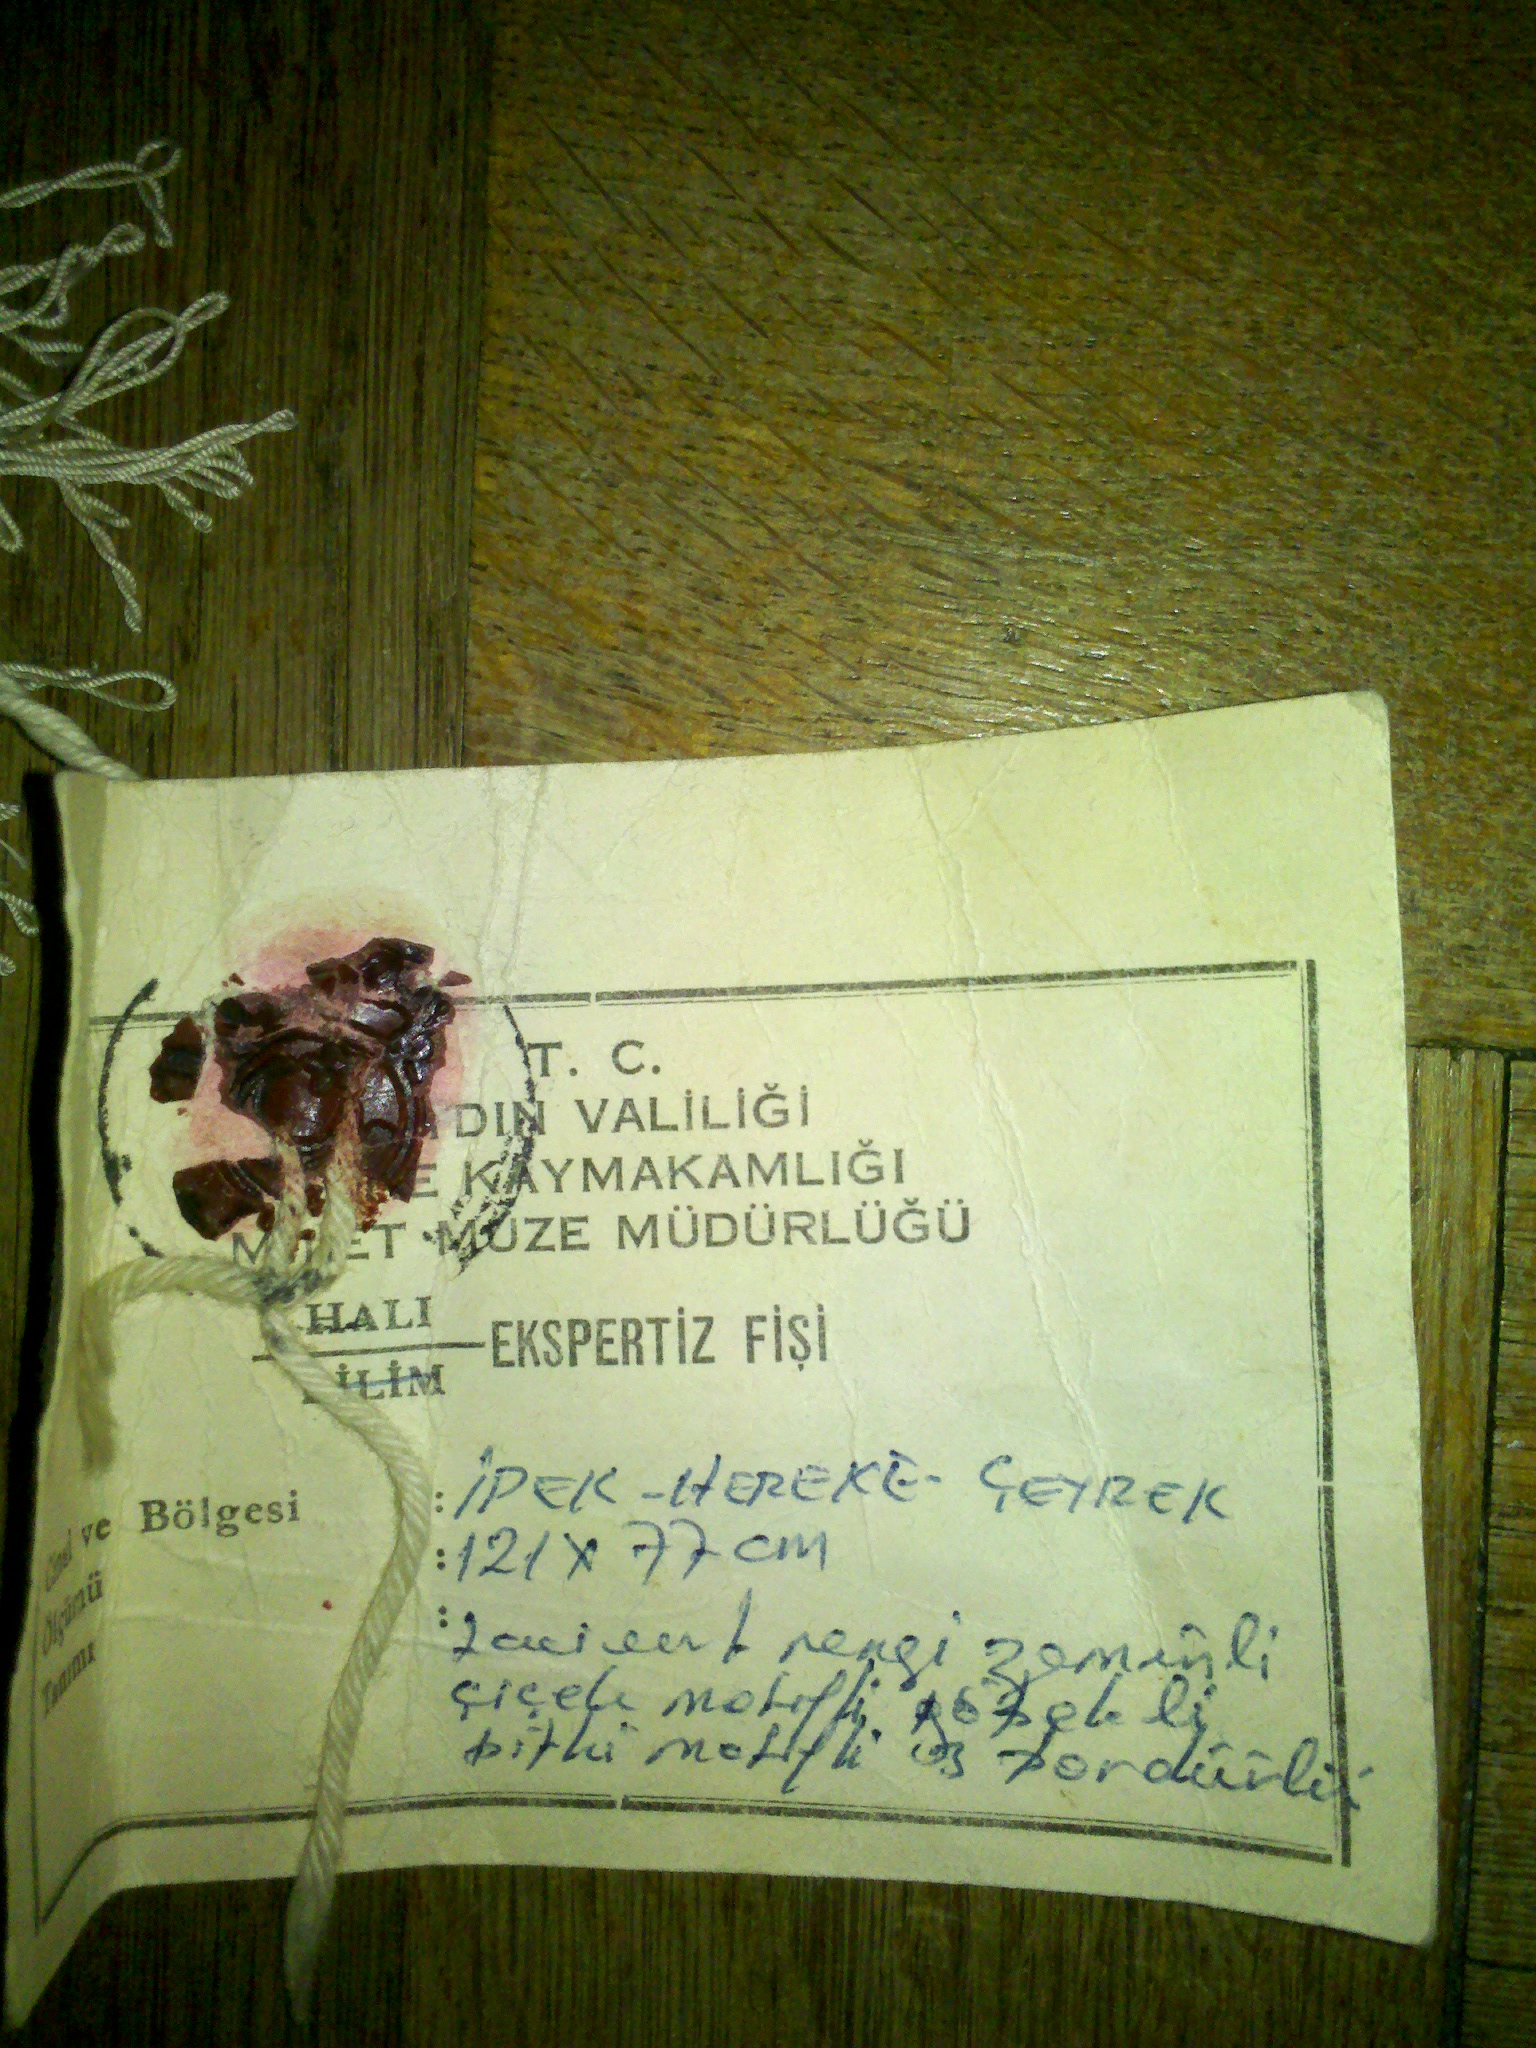 T. C.
DIN VALİLİĞİ
E KAYMAKAMLIĞI
MÜZE MÜDÜRLÜĞÜ
HALI
KİLİM
EKSPERTİZ FİŞİ
Cinsi ve Bölgesi : İPEK - HEREKE - ÇEYREK
Ölçünü : 121 x 77 cm
Tanımı : Lacivert rengi zeminli
çiçek motifli göbekli
bitki motifli üç bordürlü